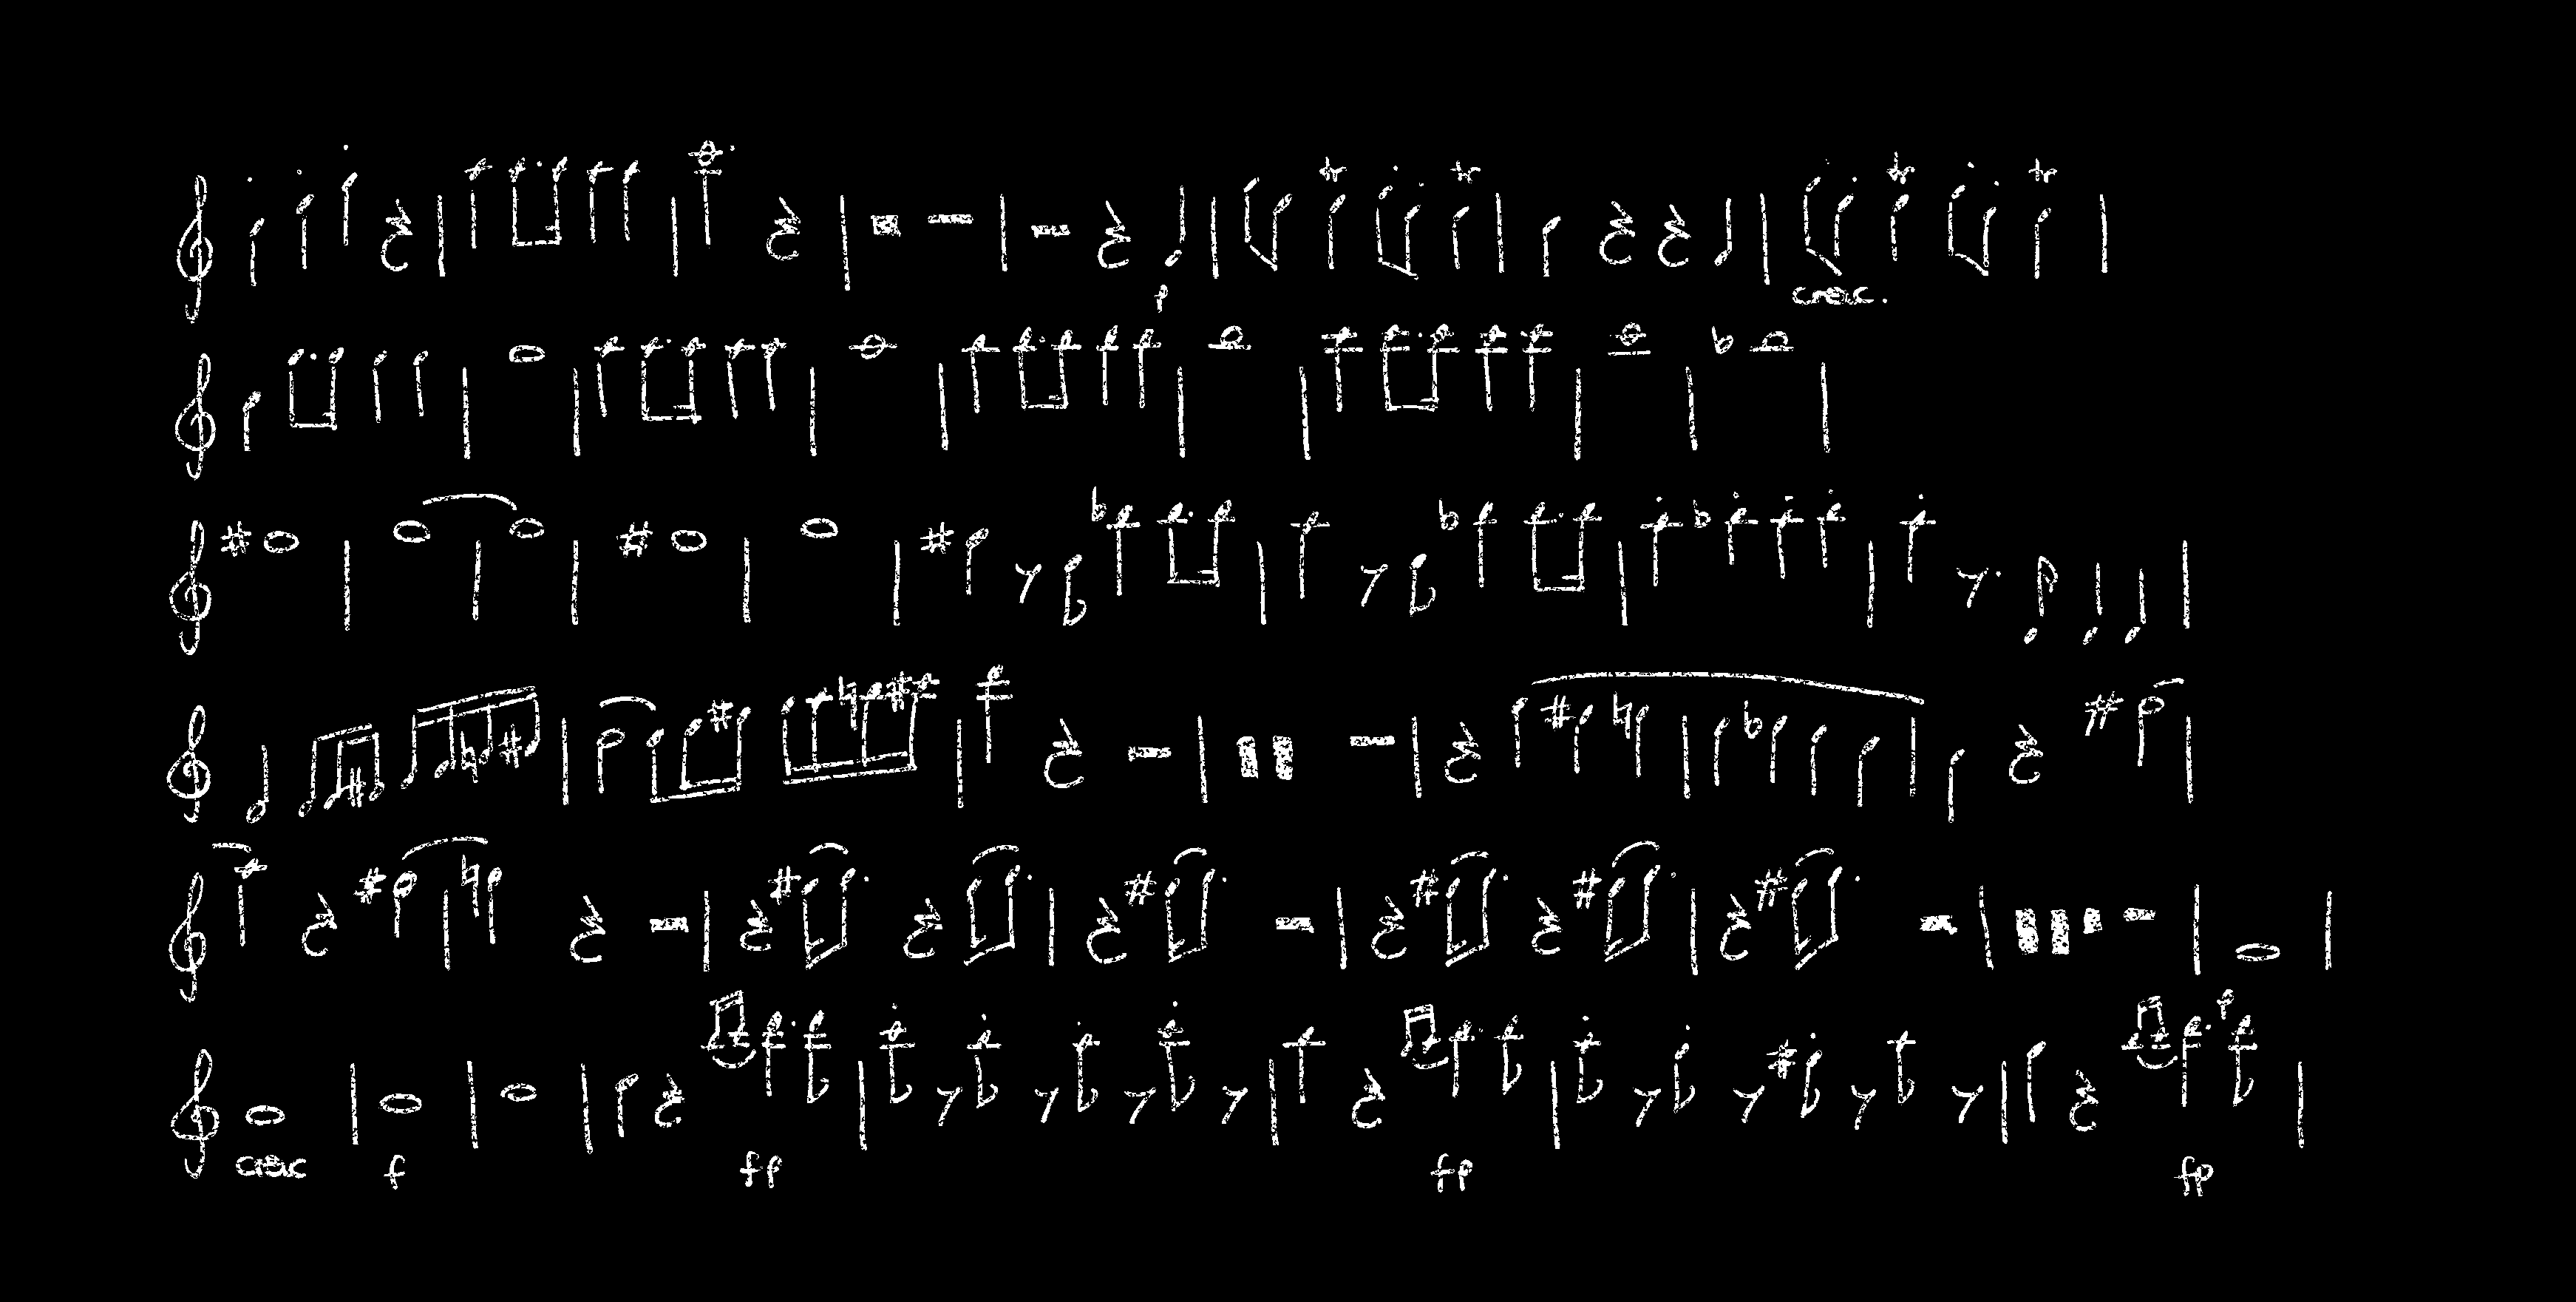 tr tr tr tr
p cresc.
cresc f fp fp p fp